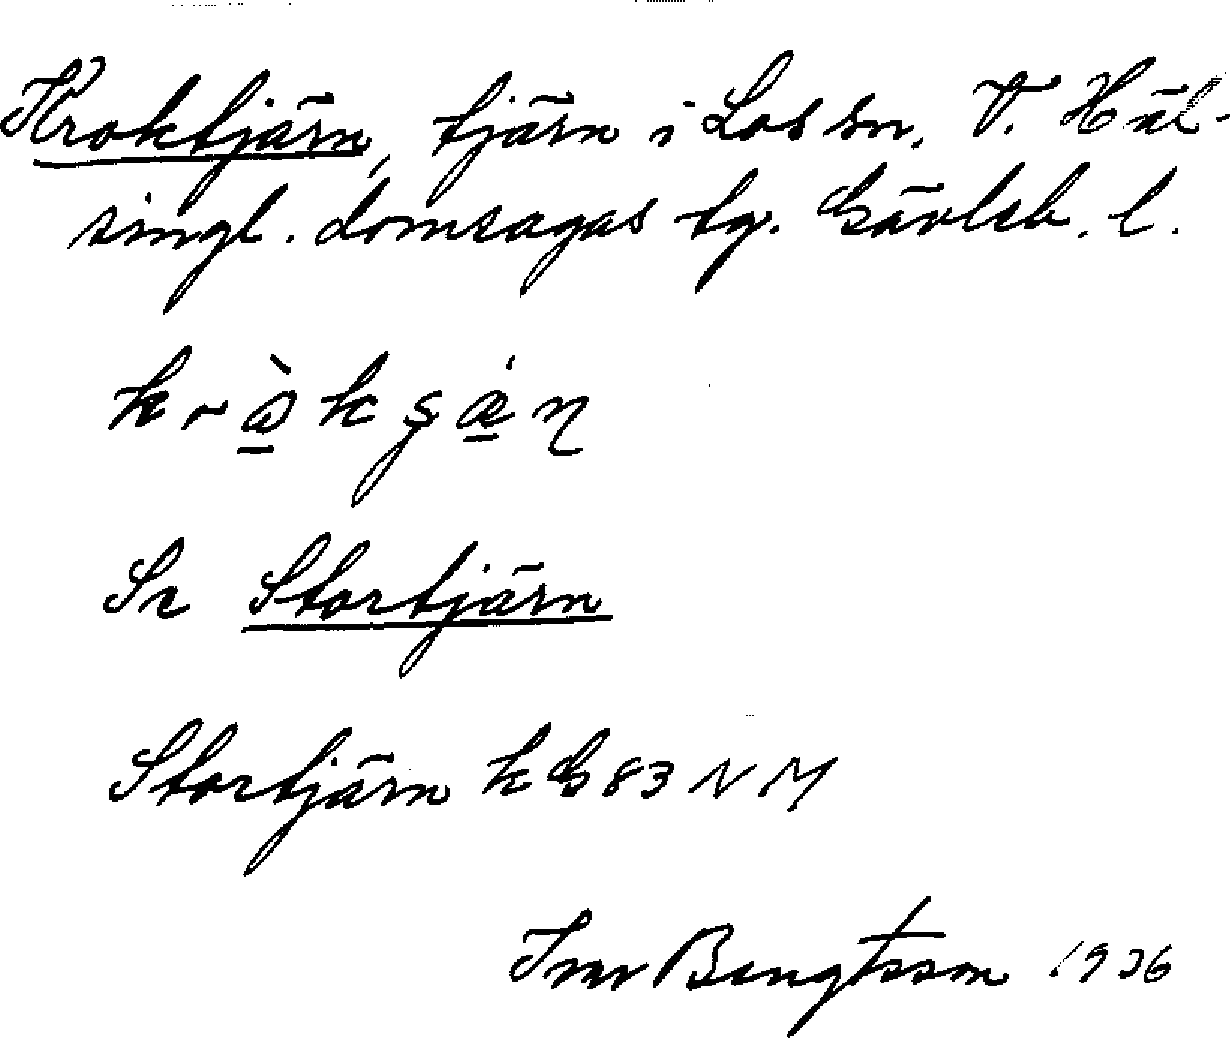 Kroktjärn, tjärn i Los sn, V. Häl-
singl. domsagas tg. Gävleb. l.
Se Stortjärn
Stortjärn k G 83 N M
Bengtsson 1936